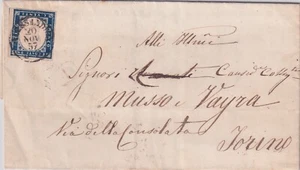 20
NOV
57
Alli Illmi
Signori Causid Colleg
Musso e Vayra
Via della Consolata
Torino